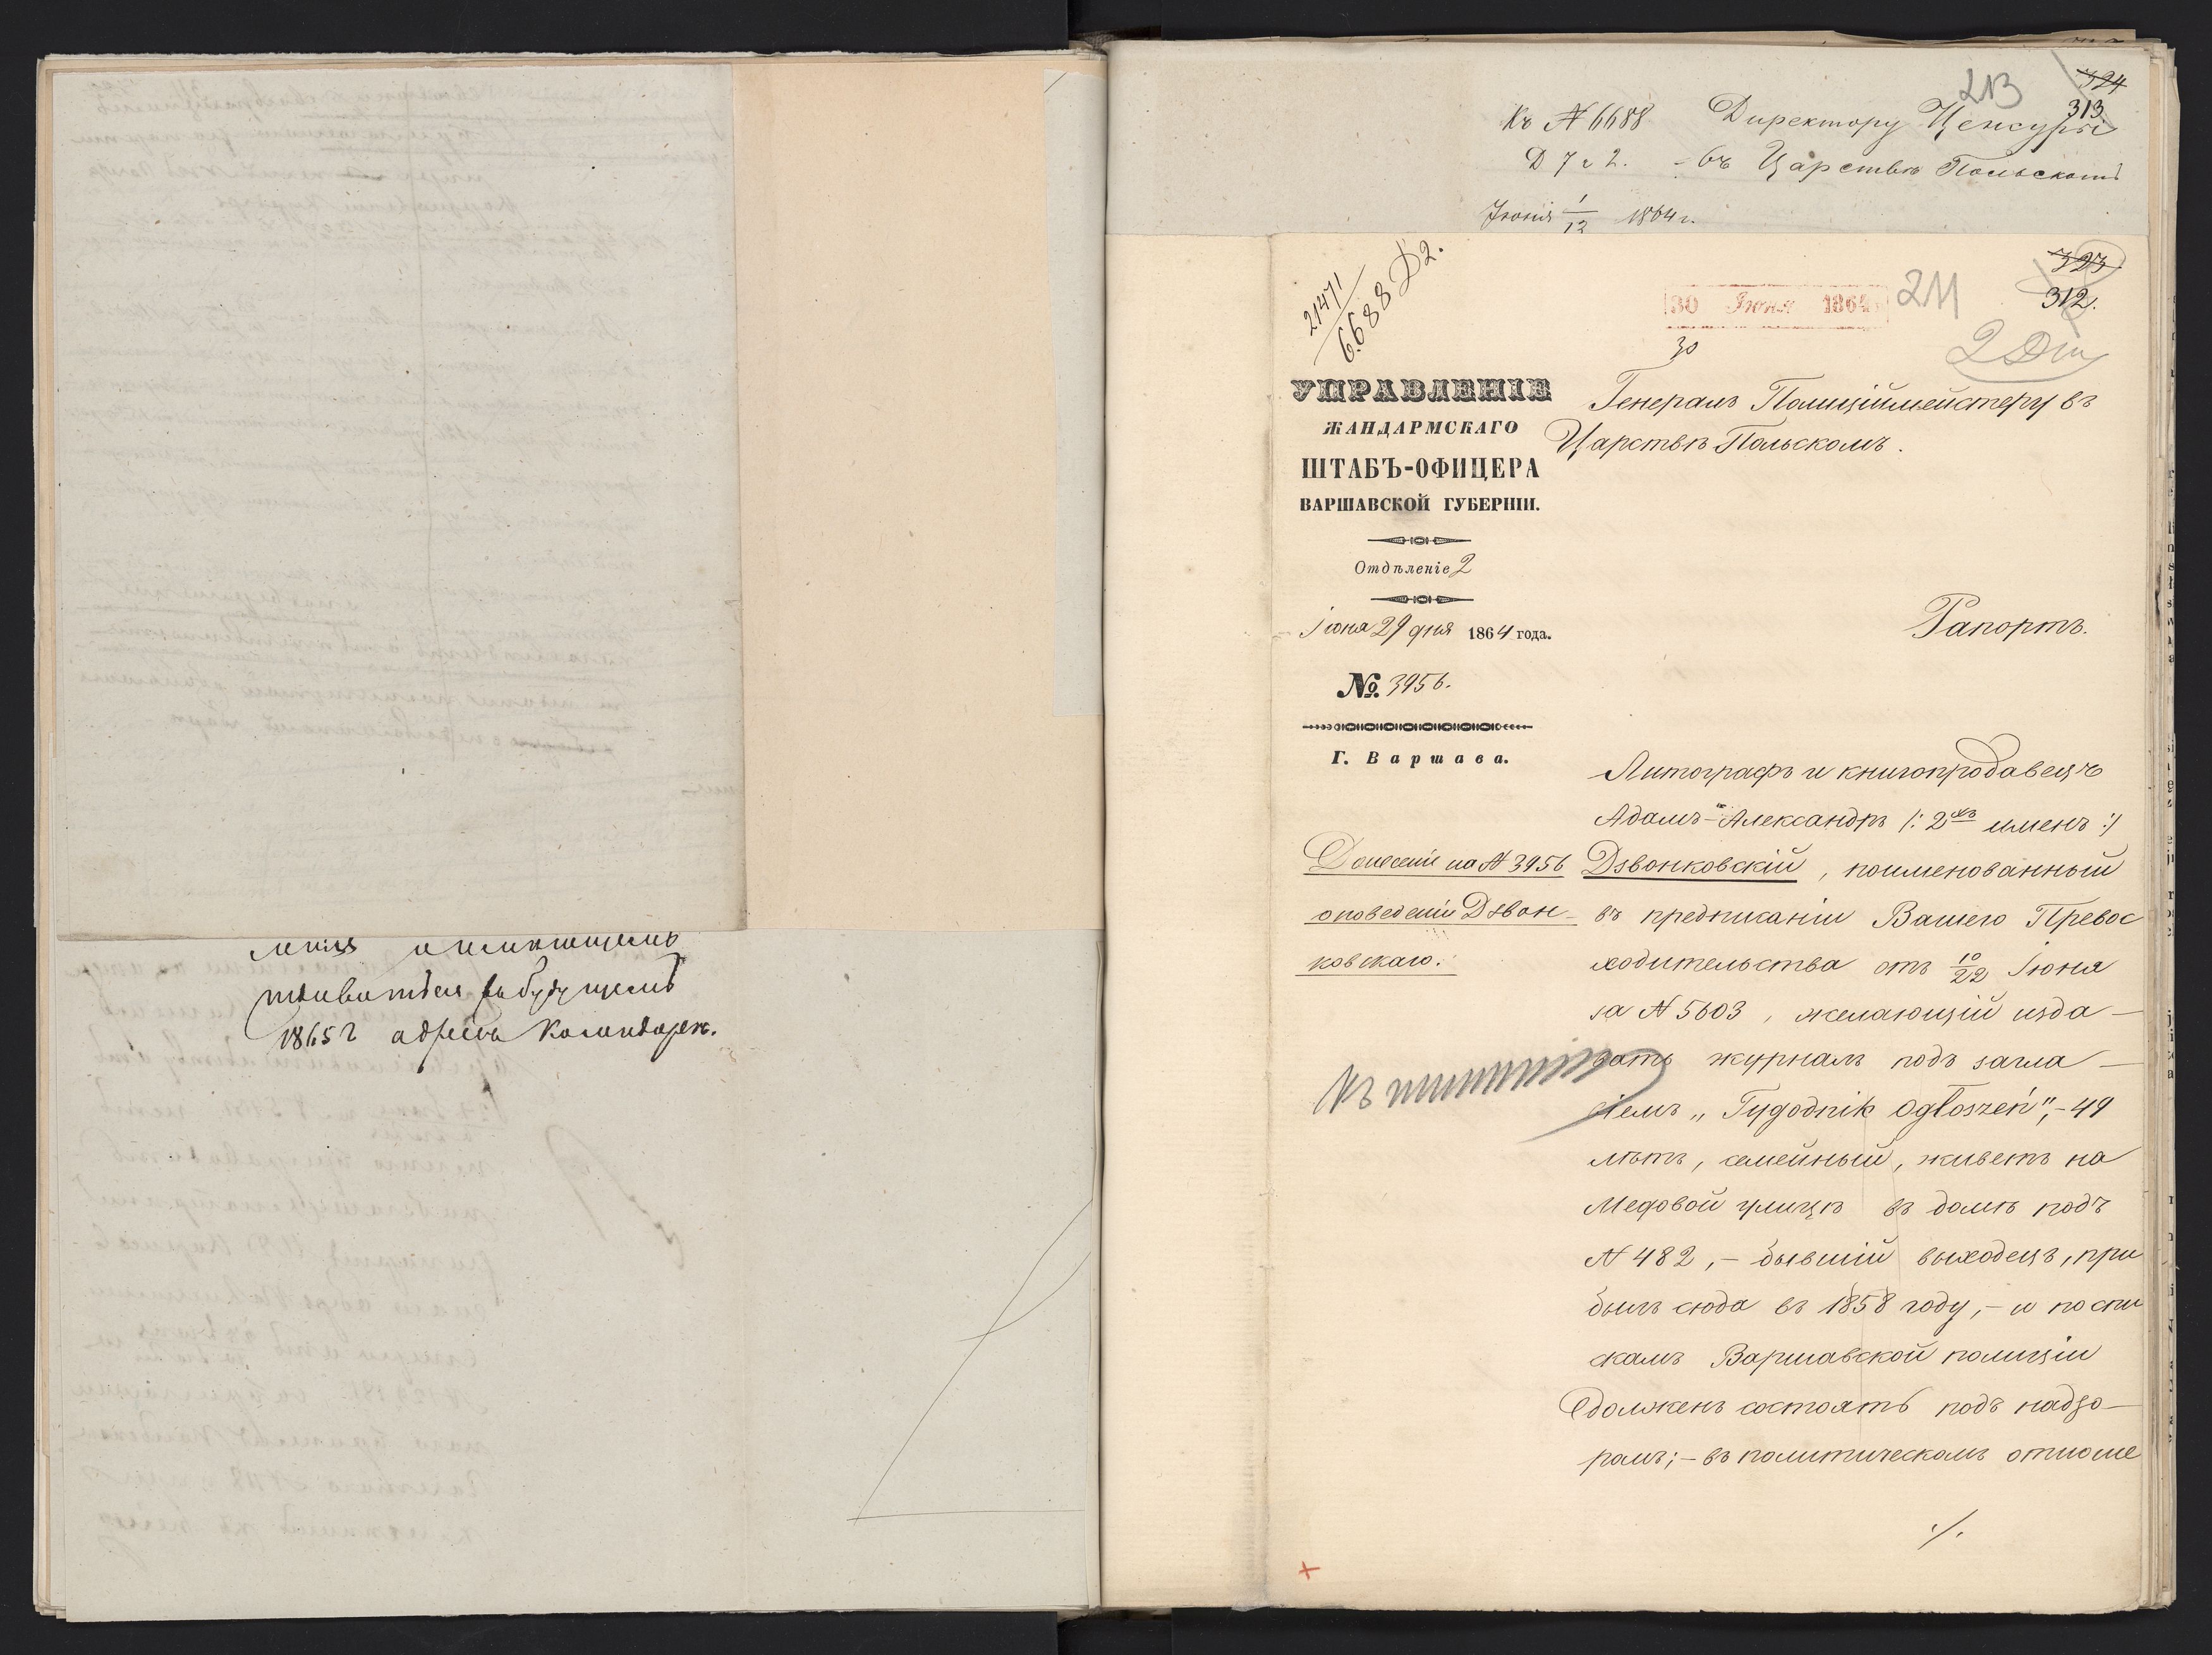 1865 г адресъ календаря.
213
324
313
Къ № 6688 Директору Ценсуры
Д 7 г 2. въ Царствѣ Польскомъ
Іюня 1/12 1864 г.
21471
6688 Д 2.
30 Іюня 1864
30
211
323
312.
УПРАВЛЕНІЕ
ЖАНДАРМСКАГО
ШТАБЪ-ОФИЦЕРА
ВАРШАВСКОЙ ГУБЕРНІИ.
Отдѣленіе 2
Іюня 29 дня 1864 года.
№ 3956.
Г. Варшава.
Донесеніе на № 3956
о поведеніи Дзвон-
ковскаго.
Генералъ Полиціймейстеру въ
Царствѣ Польскомъ.
Рапортъ.
Литографъ и книгопродавецъ
Адамъ-Александръ /: 2хъ именъ :/
Дзвонковскій, поименованный
въ предписаніи Вашего Превос
ходительства отъ 10/22 Іюня
за № 5603, желающій изда-
вать журналъ подъ загла-
віемъ „Tygodnik Ogłoszeń", - 49
лѣтъ, семейный, живетъ на
Медовой улицѣ въ домѣ подъ
№ 482, - бывшій выходецъ, при
былъ сюда въ 1858 году, - и по спи
скамъ Варшавской полиціи
должень состоять подъ надзо-
ромъ; - въ политическомъ отноше
./.